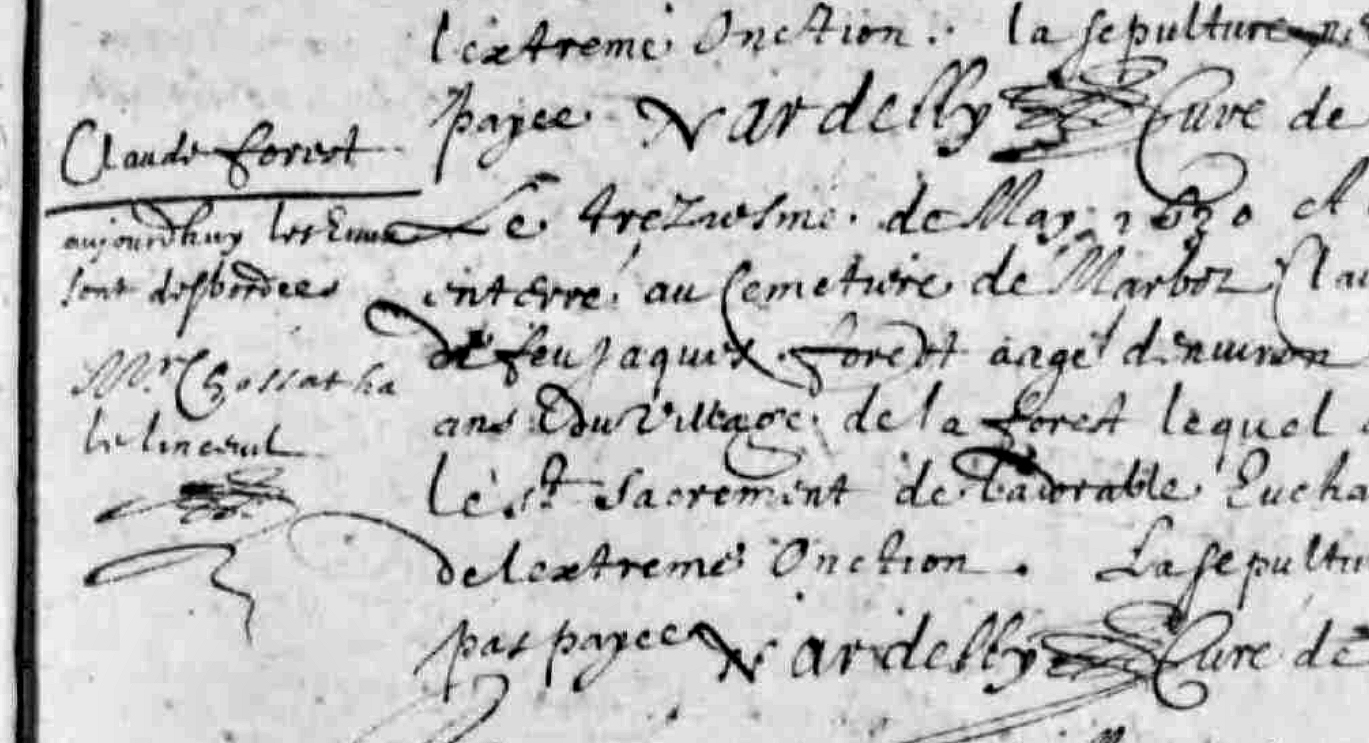 l'extreme Onction. la sepulture
payee Vardelly Cure de
Claude Forest
aujourdhuy les Eaux
sont desbordees
Mr Chossat ha
le linceul
Le trezuesme de May 1690 et
enterré au Cemetiere de Marboz Clau
de feu Jaques forest aagé d'environ
ans Du Village de la forest lequel
le st Sacrement de l'adorable Eucha
de l'extreme Onction. La sepultu
pas payee Vardelly Cure de